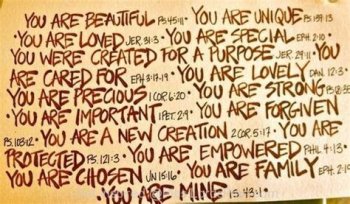 YOU ARE BEAUTIFUL PS.45:11 · YOU ARE UNIQUE PS.139:13
· YOU ARE LOVED JER.31:3 · YOU ARE SPECIAL EPH.2:10
YOU WERE CREATED FOR A PURPOSE JER.29:11 · YOU
ARE CARED FOR EPH 3:17-19 · YOU ARE LOVELY DAN. 12:3 ·
YOU ARE PRECIOUS 1 COR 6:20 · YOU ARE STRONG PS.18:35
· YOU ARE IMPORTANT 1 PET. 2:9 · YOU ARE FORGIVEN
PS.103:12 · YOU ARE A NEW CREATION 2 COR 5:17 · YOU ARE
PROTECTED PS. 121:3 · YOU ARE EMPOWERED PHIL 4:13 ·
YOU ARE CHOSEN JN 15:16 · YOU ARE FAMILY EPH. 2:19
· YOU ARE MINE IS. 43:1 ·